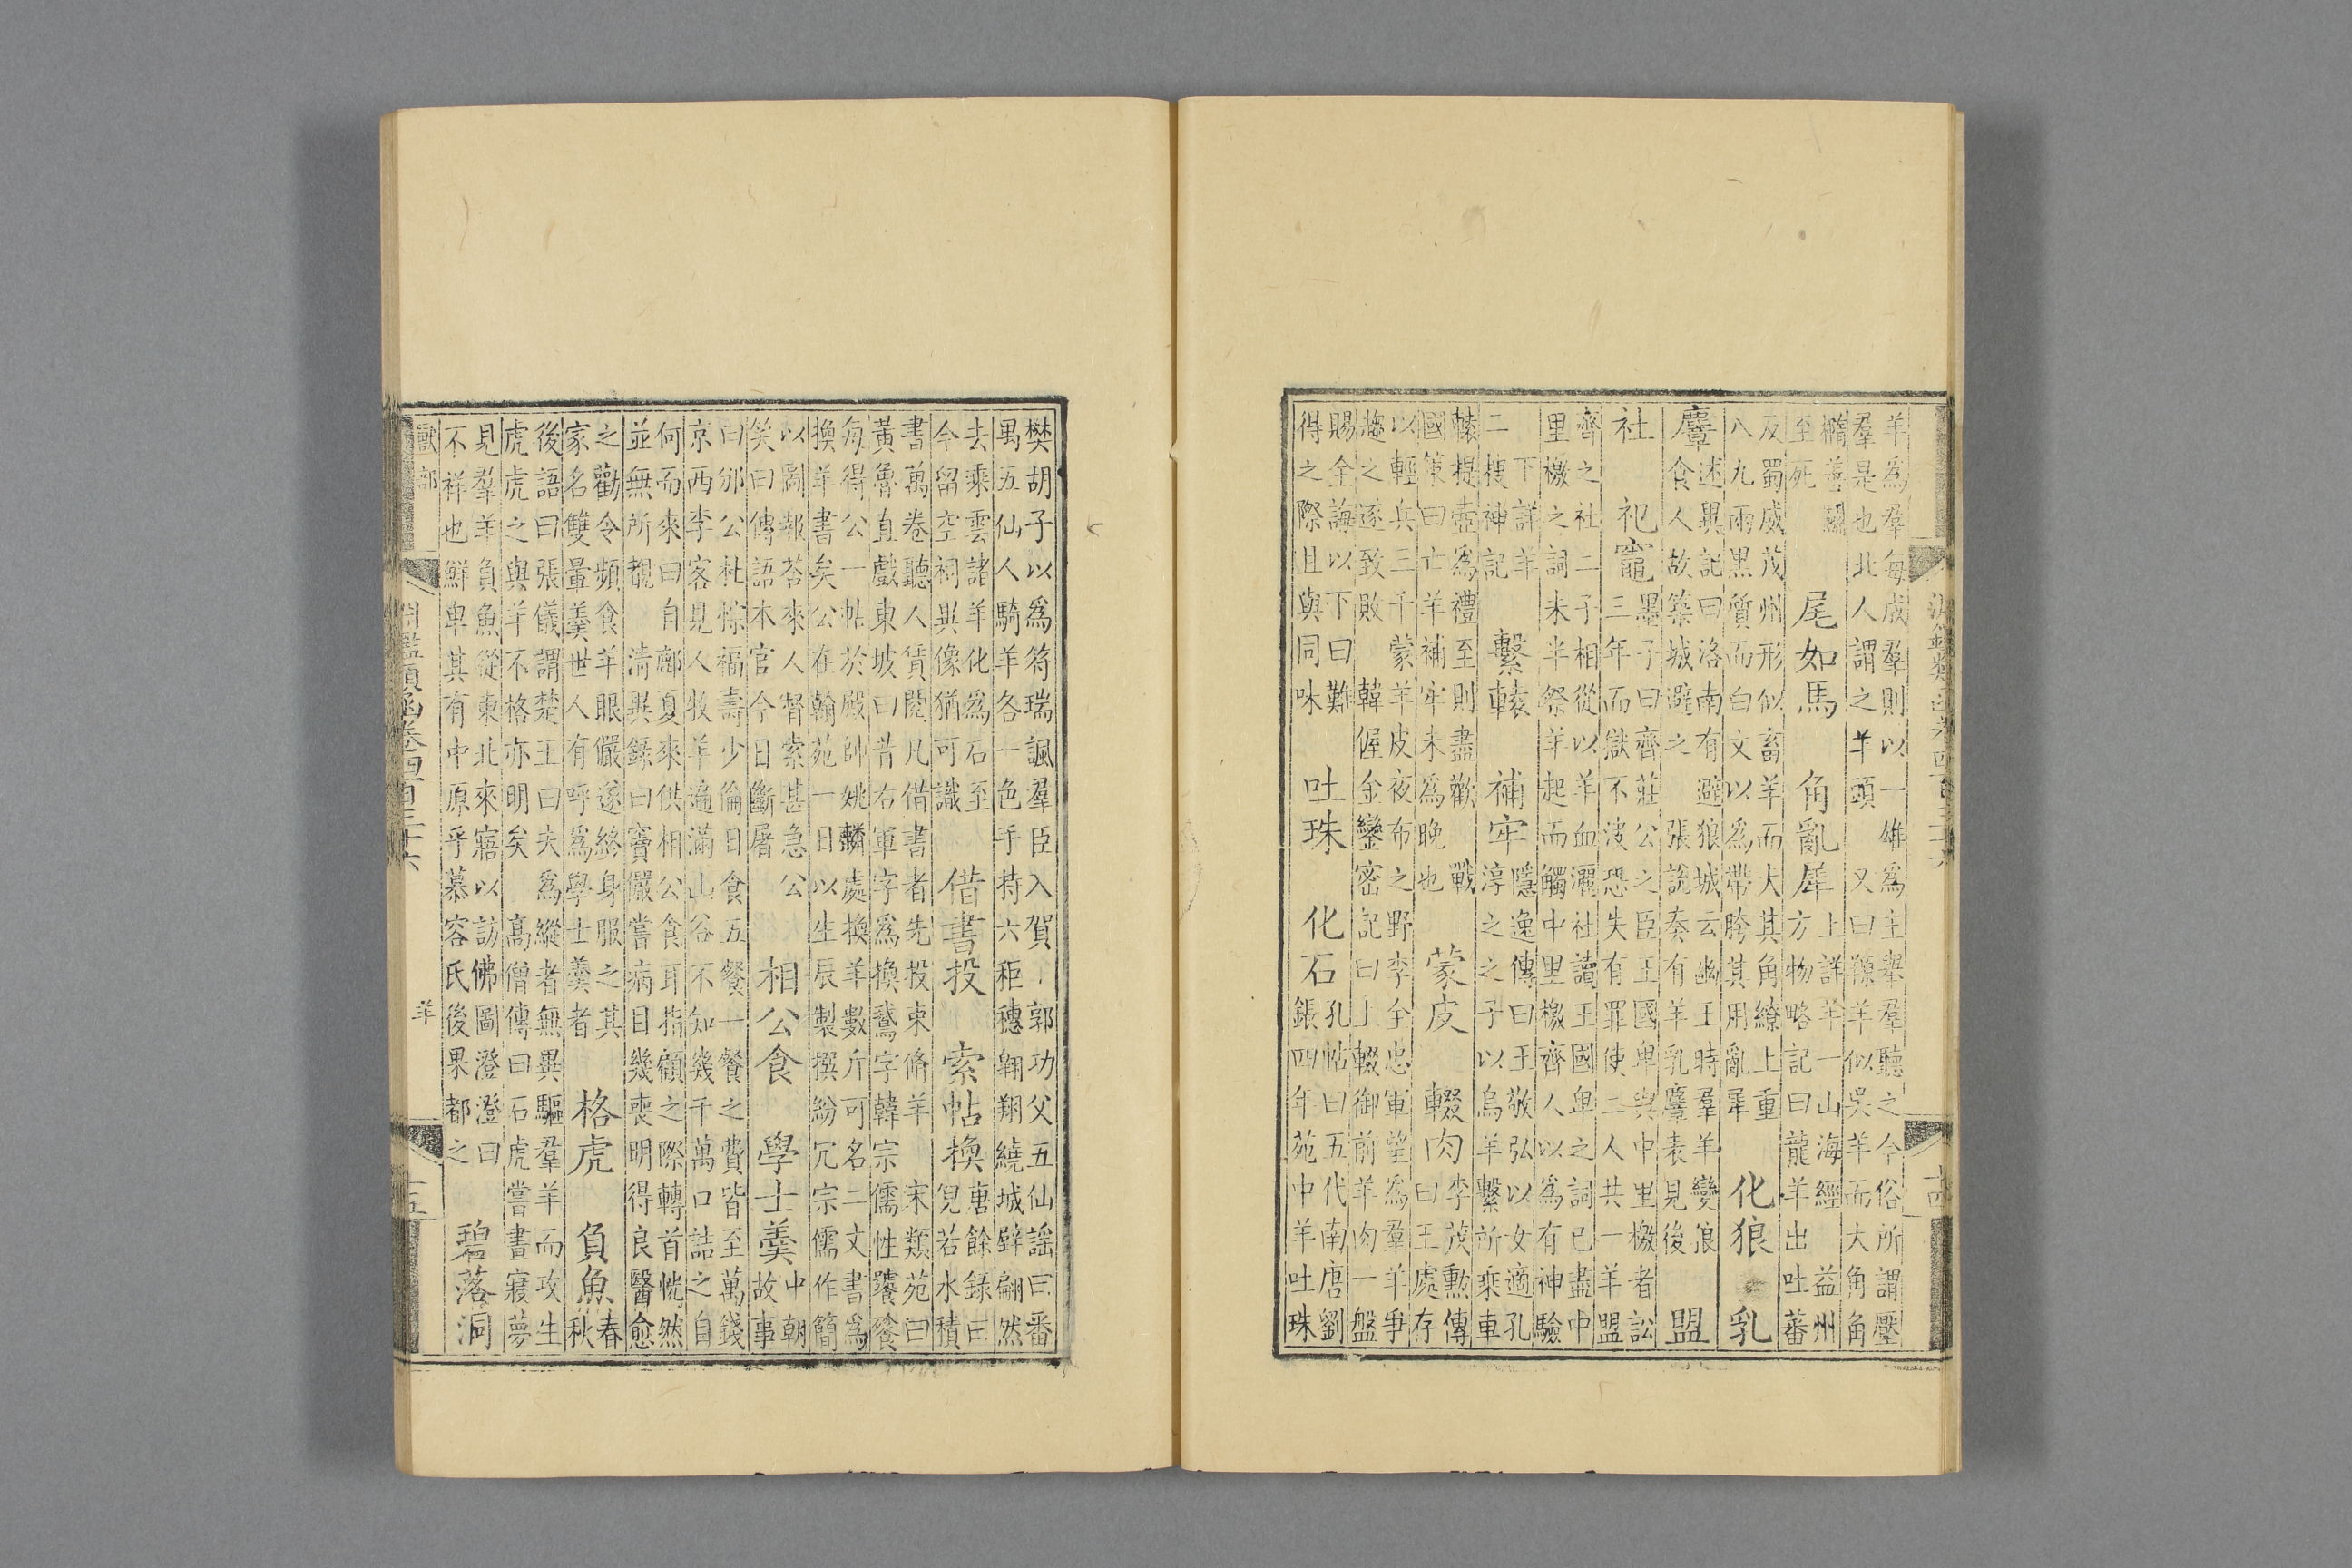 羊爲羣每成羣則以一雄爲主舉羣聽之今俗所謂壓
羣是也北人謂之羊頭 又曰羱羊似吳羊而大角角
橢善鬬
至死
尾如馬
上詳羊一山海經
角亂犀
益州
方物略記曰龍羊出吐蕃
及蜀威茂州形似畜羊而大其角繚上重
八九兩黑質而白文以爲帶胯其用亂犀
化狼
乳
麞
述異記曰洛南有避狼城云幽王時羣羊變狼
食人故築城避之 張說奏有羊乳麞表見後
盟
社
祀竈
墨子曰齊莊公之臣王國卑與中里檄者訟
三年而獄不決恐失有罪使二人共一羊盟
齊之社二子相從以羊血灑社讀王國卑之詞已盡中
里檄之詞未半祭羊起而觸中里檄齊人以爲有神驗
下詳羊
二搜神記
繫轅
補牢
隱逸傳曰王敬弘以女適孔
淳之之子以烏羊繫所乘車
轅提壺爲禮至則盡歡 戰
國策曰亡羊補牢未爲晚也
蒙皮
輟肉
李茂勳傳
曰王處存
以輕兵三千蒙羊皮夜布之野李全忠軍望爲羣羊爭
趨之遂致敗 韓偓金鑾密記曰上輟御前羊肉一盤
賜全誨以下曰難
得之際且與同味
吐珠
化石
孔帖曰五代南唐劉
鋹四年苑中羊吐珠
樊胡子以爲符瑞諷羣臣入賀 郭功父五仙謡曰番
禺五仙人騎羊各一色手持六秬穗翱翔繞城壁翩然
去乘雲諸羊化爲石至
今留空祠與像猶可識
借書投
索帖換
唐餘錄曰
倪若水積
書萬卷聽人賃閱凡借書者先投束脩羊 宋類苑曰
黃魯直戲東坡曰昔右軍字爲換鵞字韓宗儒性饕餮
每得公一帖於殿帥姚麟處換羊數斤可名二丈書爲
換羊書矣公在翰苑一日以生辰製撰紛冗宗儒作簡
以圖報荅來人督索甚急公
笑曰傳語本官今日斷屠
相公食
學士羹
中朝
故事
曰邠公杜悰福壽少倫日食五餐一餐之費皆至萬錢
京西李客見人牧羊遍滿山谷不知幾千萬口詰之自
何而來曰自鄜夏來供相公食耳指顧之際轉首恍然
並無所覩 清異錄曰竇儼嘗病目幾喪明得良醫愈
之勸令頻食羊眼儼遂終身服之其
家名雙暈羹世人有呼爲學士羹者
格虎
負魚
春
秋
後語曰張儀謂楚王曰夫爲縱者無異驅羣羊而攻生
虎虎之與羊不格亦明矣 髙僧傳曰石虎嘗晝寢夢
見羣羊負魚從東北來寤以訪佛圖澄澄曰
不祥也鮮卑其有中原乎慕容氏後果都之
碧落洞
獸部
淵鑑類函卷四百三十六
羊
十五
淵鑑類函卷四百三十六
十四